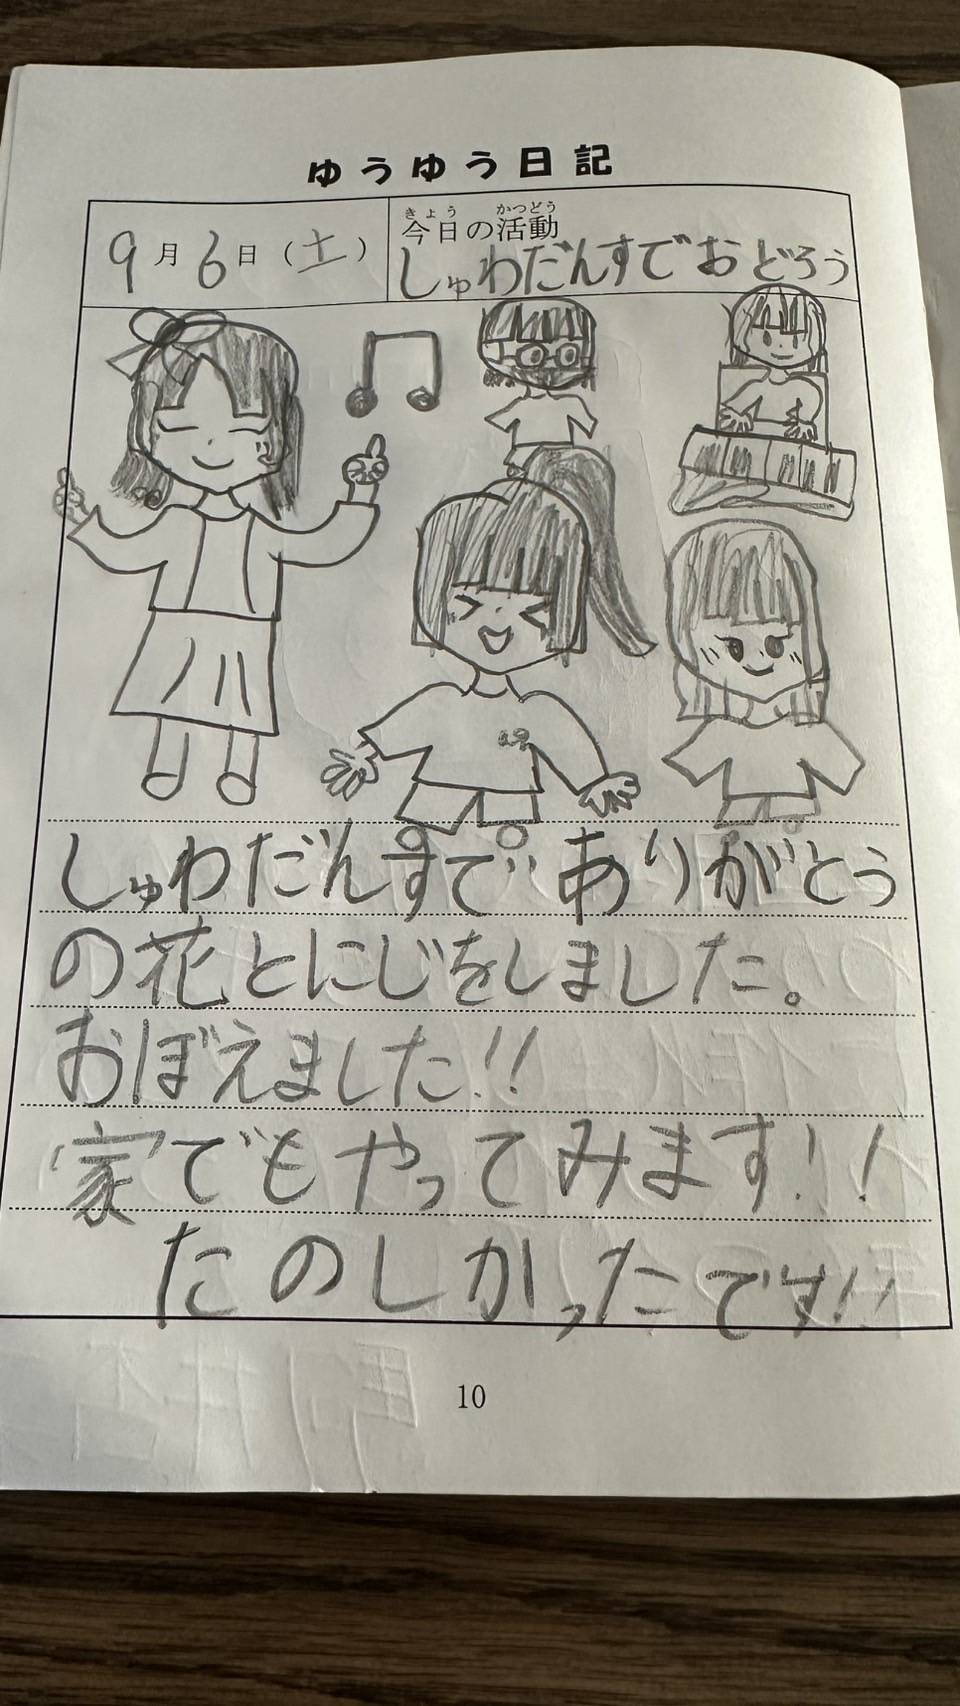 ゆうゆう日記
9月6日（土）
きょう かつどう
今日の活動
しゅわだんすでおどろう
しゅわだんすで ありがとう
の花とにじをしました。
おぼえました!!
家でもやってみます!!
たのしかったです!!
10